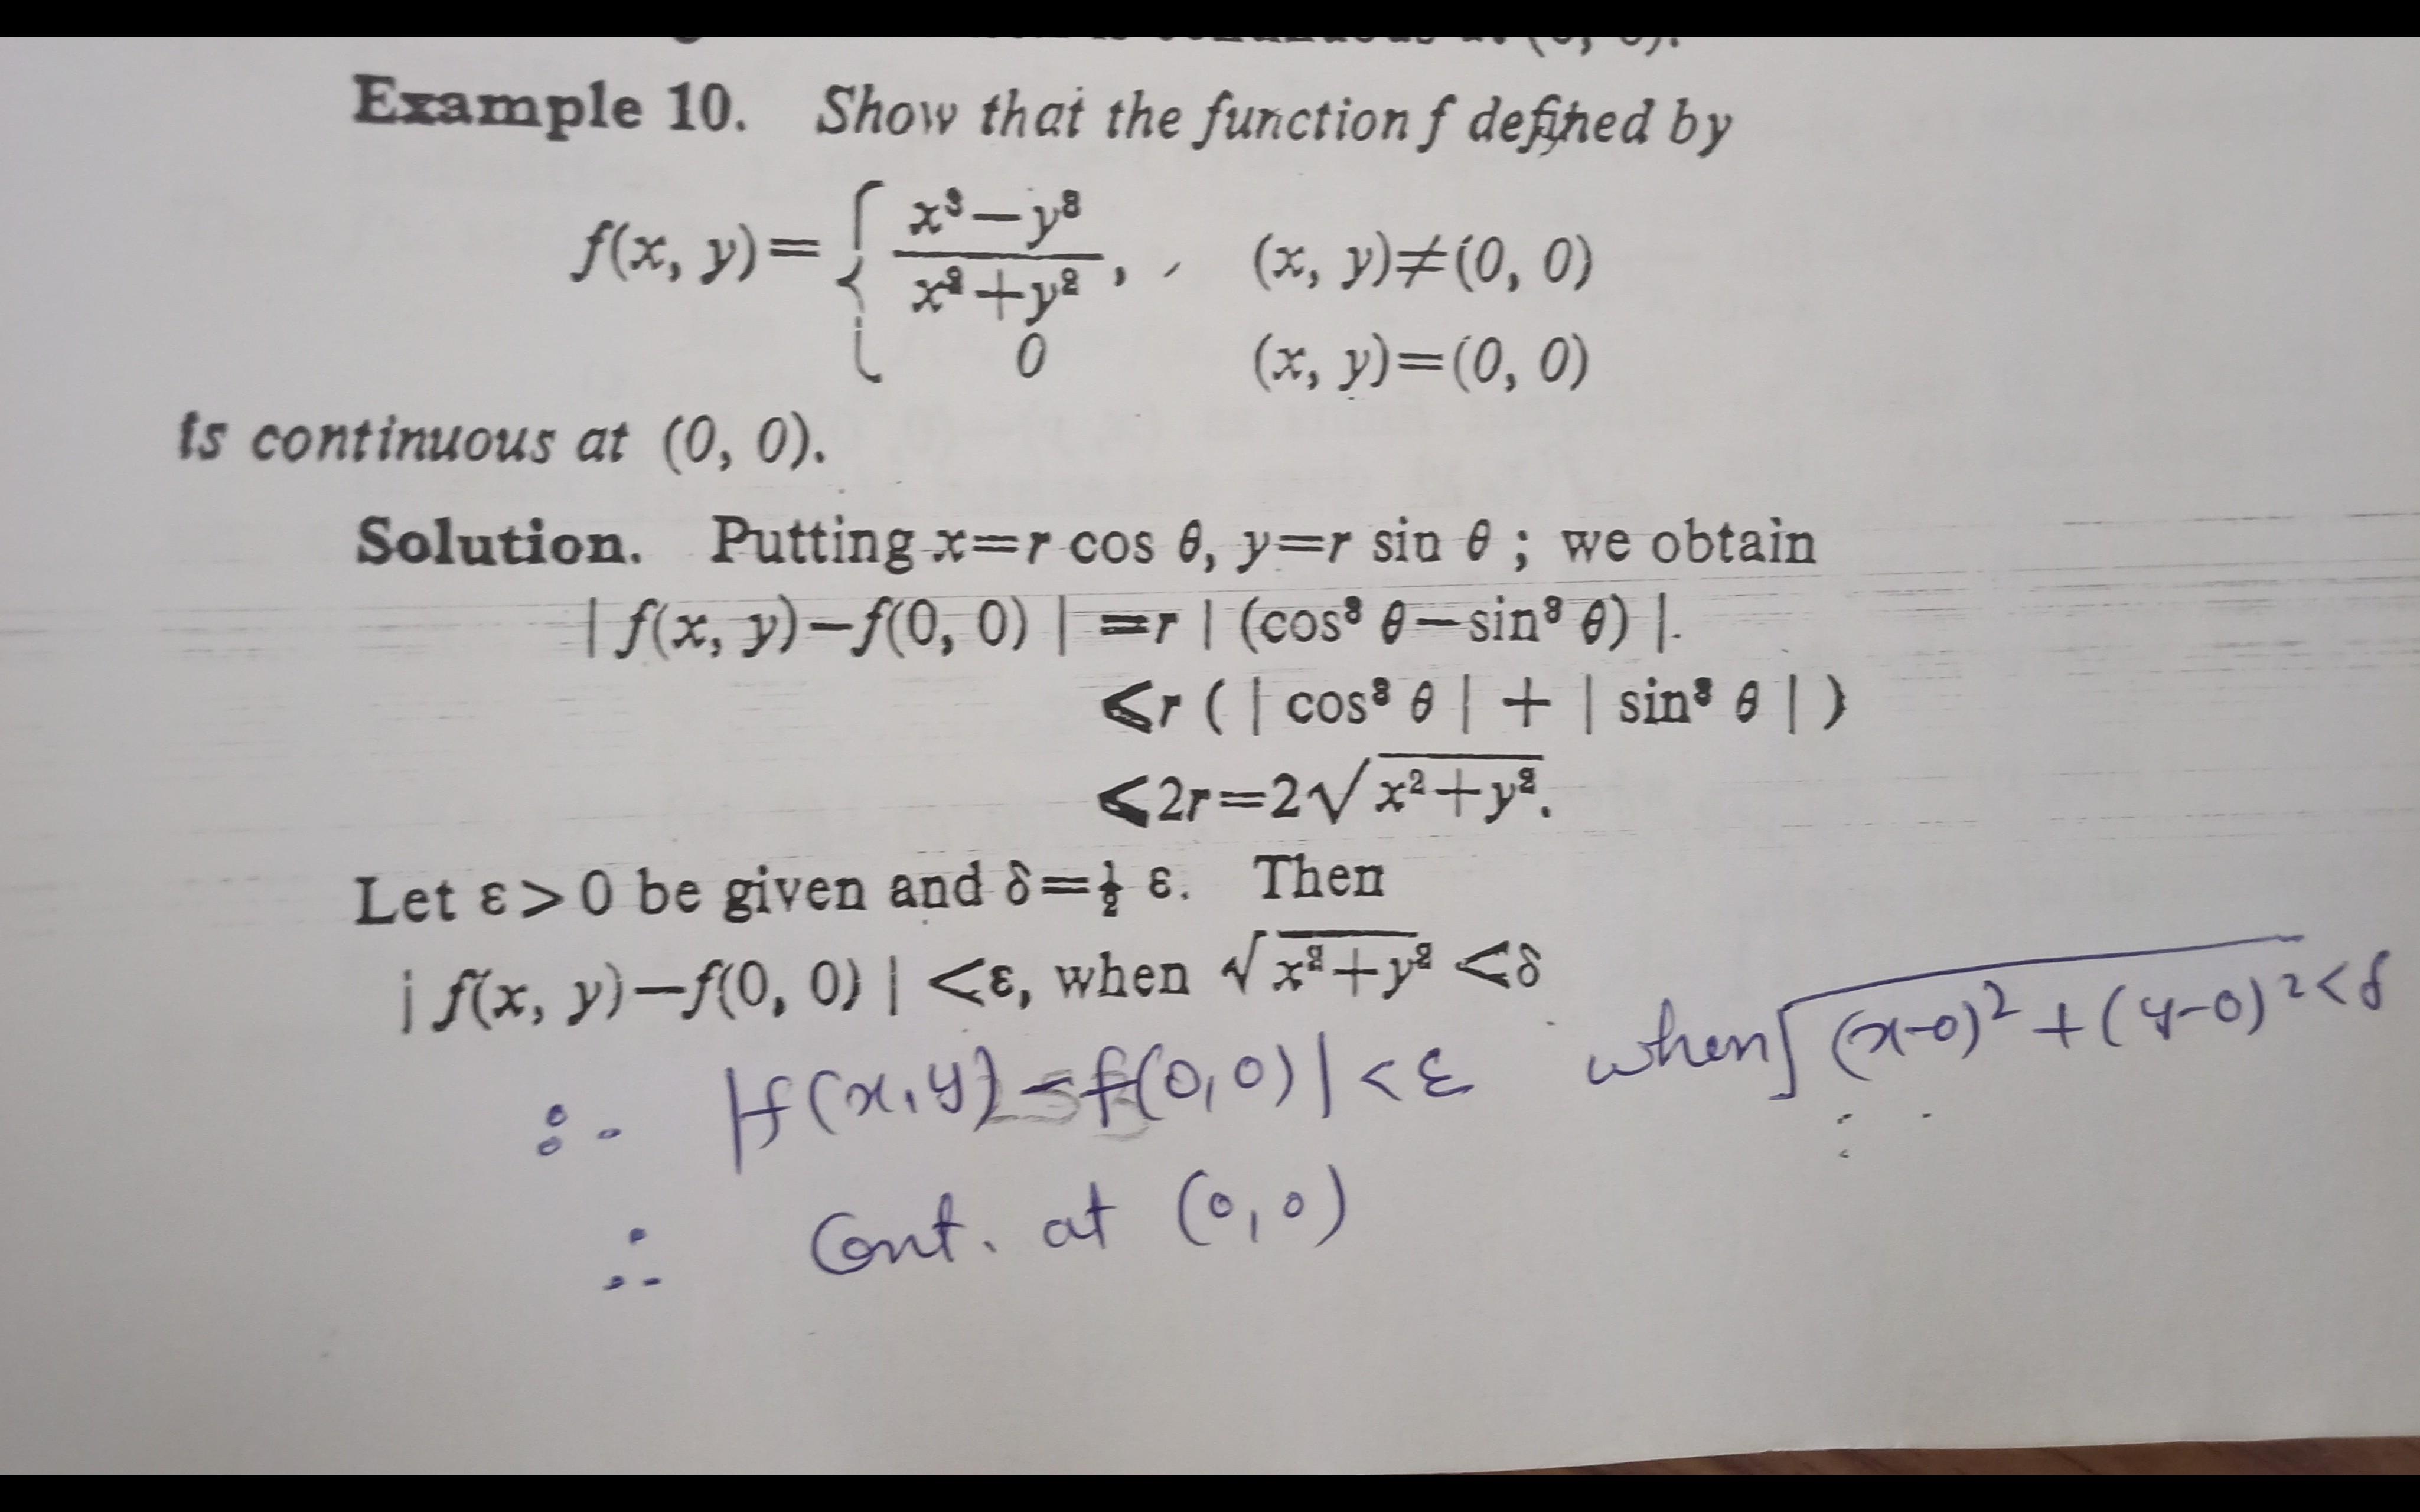 (0, 0).
Example 10. Show that the function f defined by
f(x, y)= { x³—y³ / x²+y², (x, y)≠(0, 0)
0 (x, y)=(0, 0)
is continuous at (0, 0).
Solution. Putting x=r cos θ, y=r sin θ ; we obtain
| f(x, y)—f(0, 0) | =r | (cos³ θ—sin³ θ) |.
⩽r ( | cos³ θ | + | sin³ θ | )
⩽2r=2√x²+y².
Let ε>0 be given and δ=½ ε. Then
| f(x, y)—f(0, 0) | <ε, when √x²+y² <δ
∴ |f(x,y)-f(0,0)| <ε when √(x-0)²+(y-0)² <δ
∴ Cont. at (0,0)